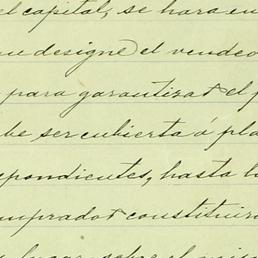 el capital, se hara en
ue designe el vendedo
para garantizar el p
be ser cubierta á pla
spondientes, hasta l
omprador constituir
lugar sobre el mism